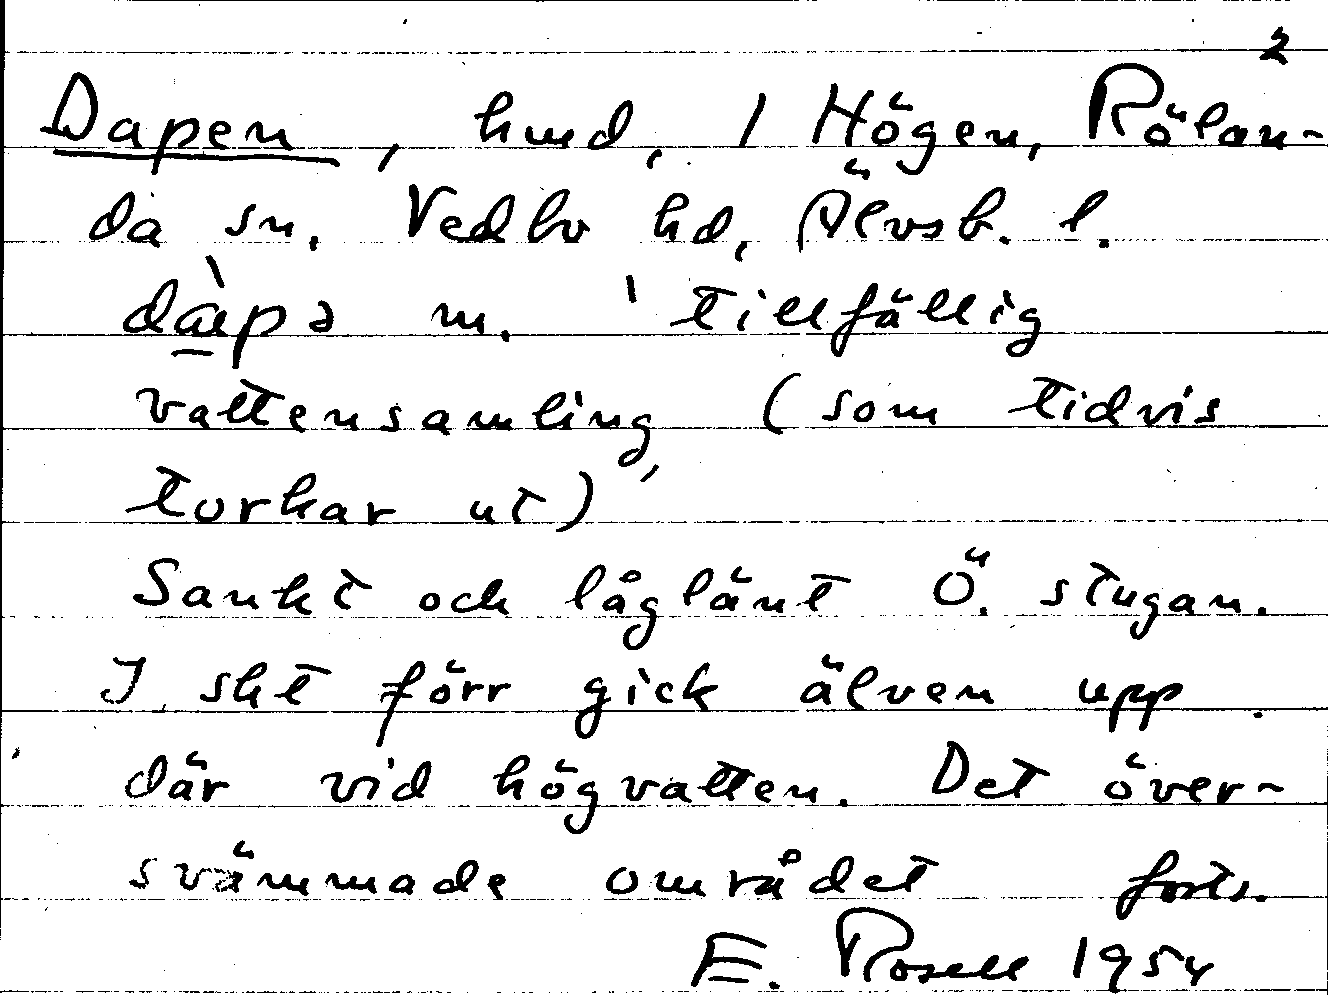 2
Dapen, hmd, 1 Högen, Rölan-
da sn. Vedbo hd, Älvsb. l.
dàpə m. 'tillfällig
vattensamling (som tidvis
torkar ut)'
Sankt och låglänt Ö. stugan.
I sht förr gick älven upp
där vid högvatten. Det över-
svämmade området forts.
E. Rosell 1954